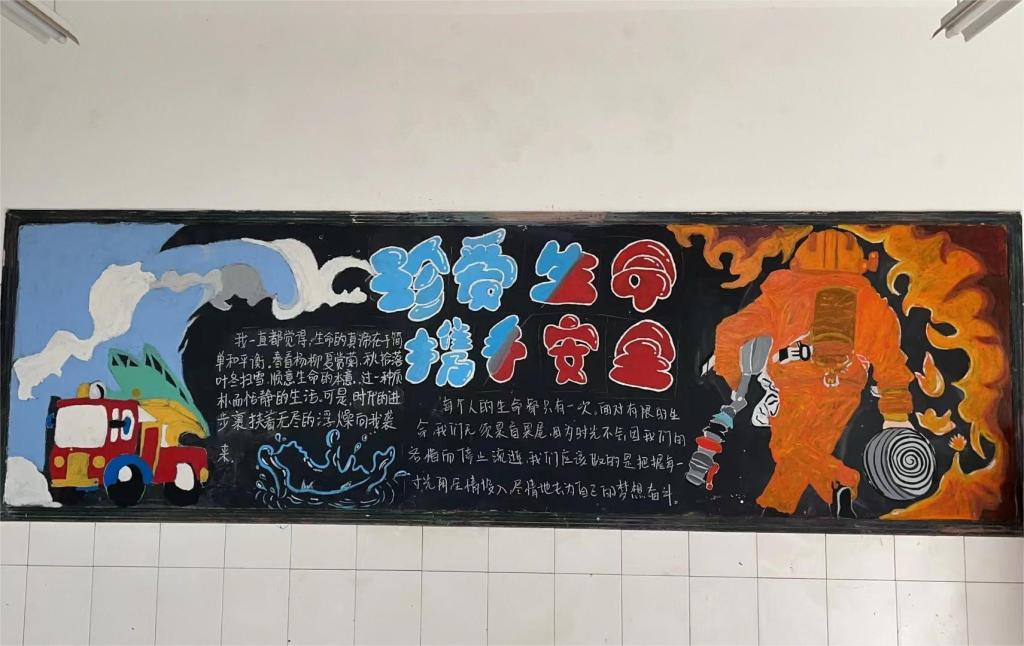 珍爱生命
携手安全
我一直都觉得,生命的真谛在于简
单和平衡。春看杨柳夏赏菊,秋拾落
叶冬扫雪,顺意生命的本意,过一种质
朴而恬静的生活。可是,时代的进
步裹扶着无尽的浮燥向我袭
来。
每个人的生命都只有一次,面对有限的生
命,我们无须畏首畏尾,因为时光不会因我们的
而停止流逝,我们应该做的是把握每一
寸光用尽情投入尽情地去为自己的梦想奋斗。